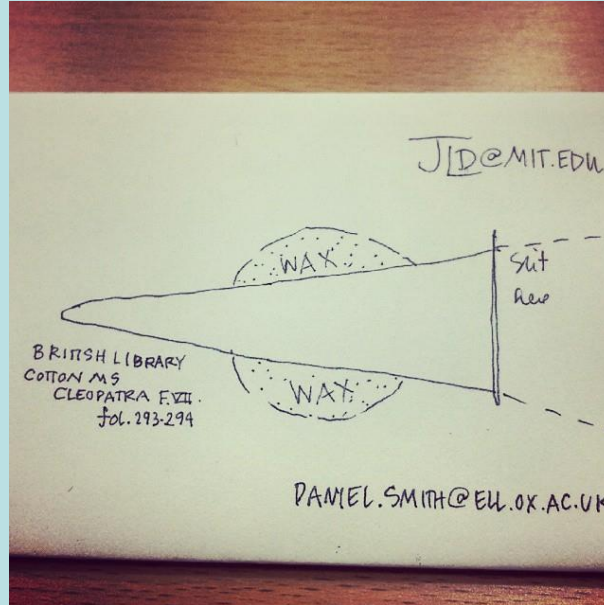 JLD@MIT.EDU
WAX
Slit
here
BRITISH LIBRARY
COTTON MS
CLEOPATRA F.VII.
fol. 293-294
WAX
DANIEL.SMITH@ELL.OX.AC.UK